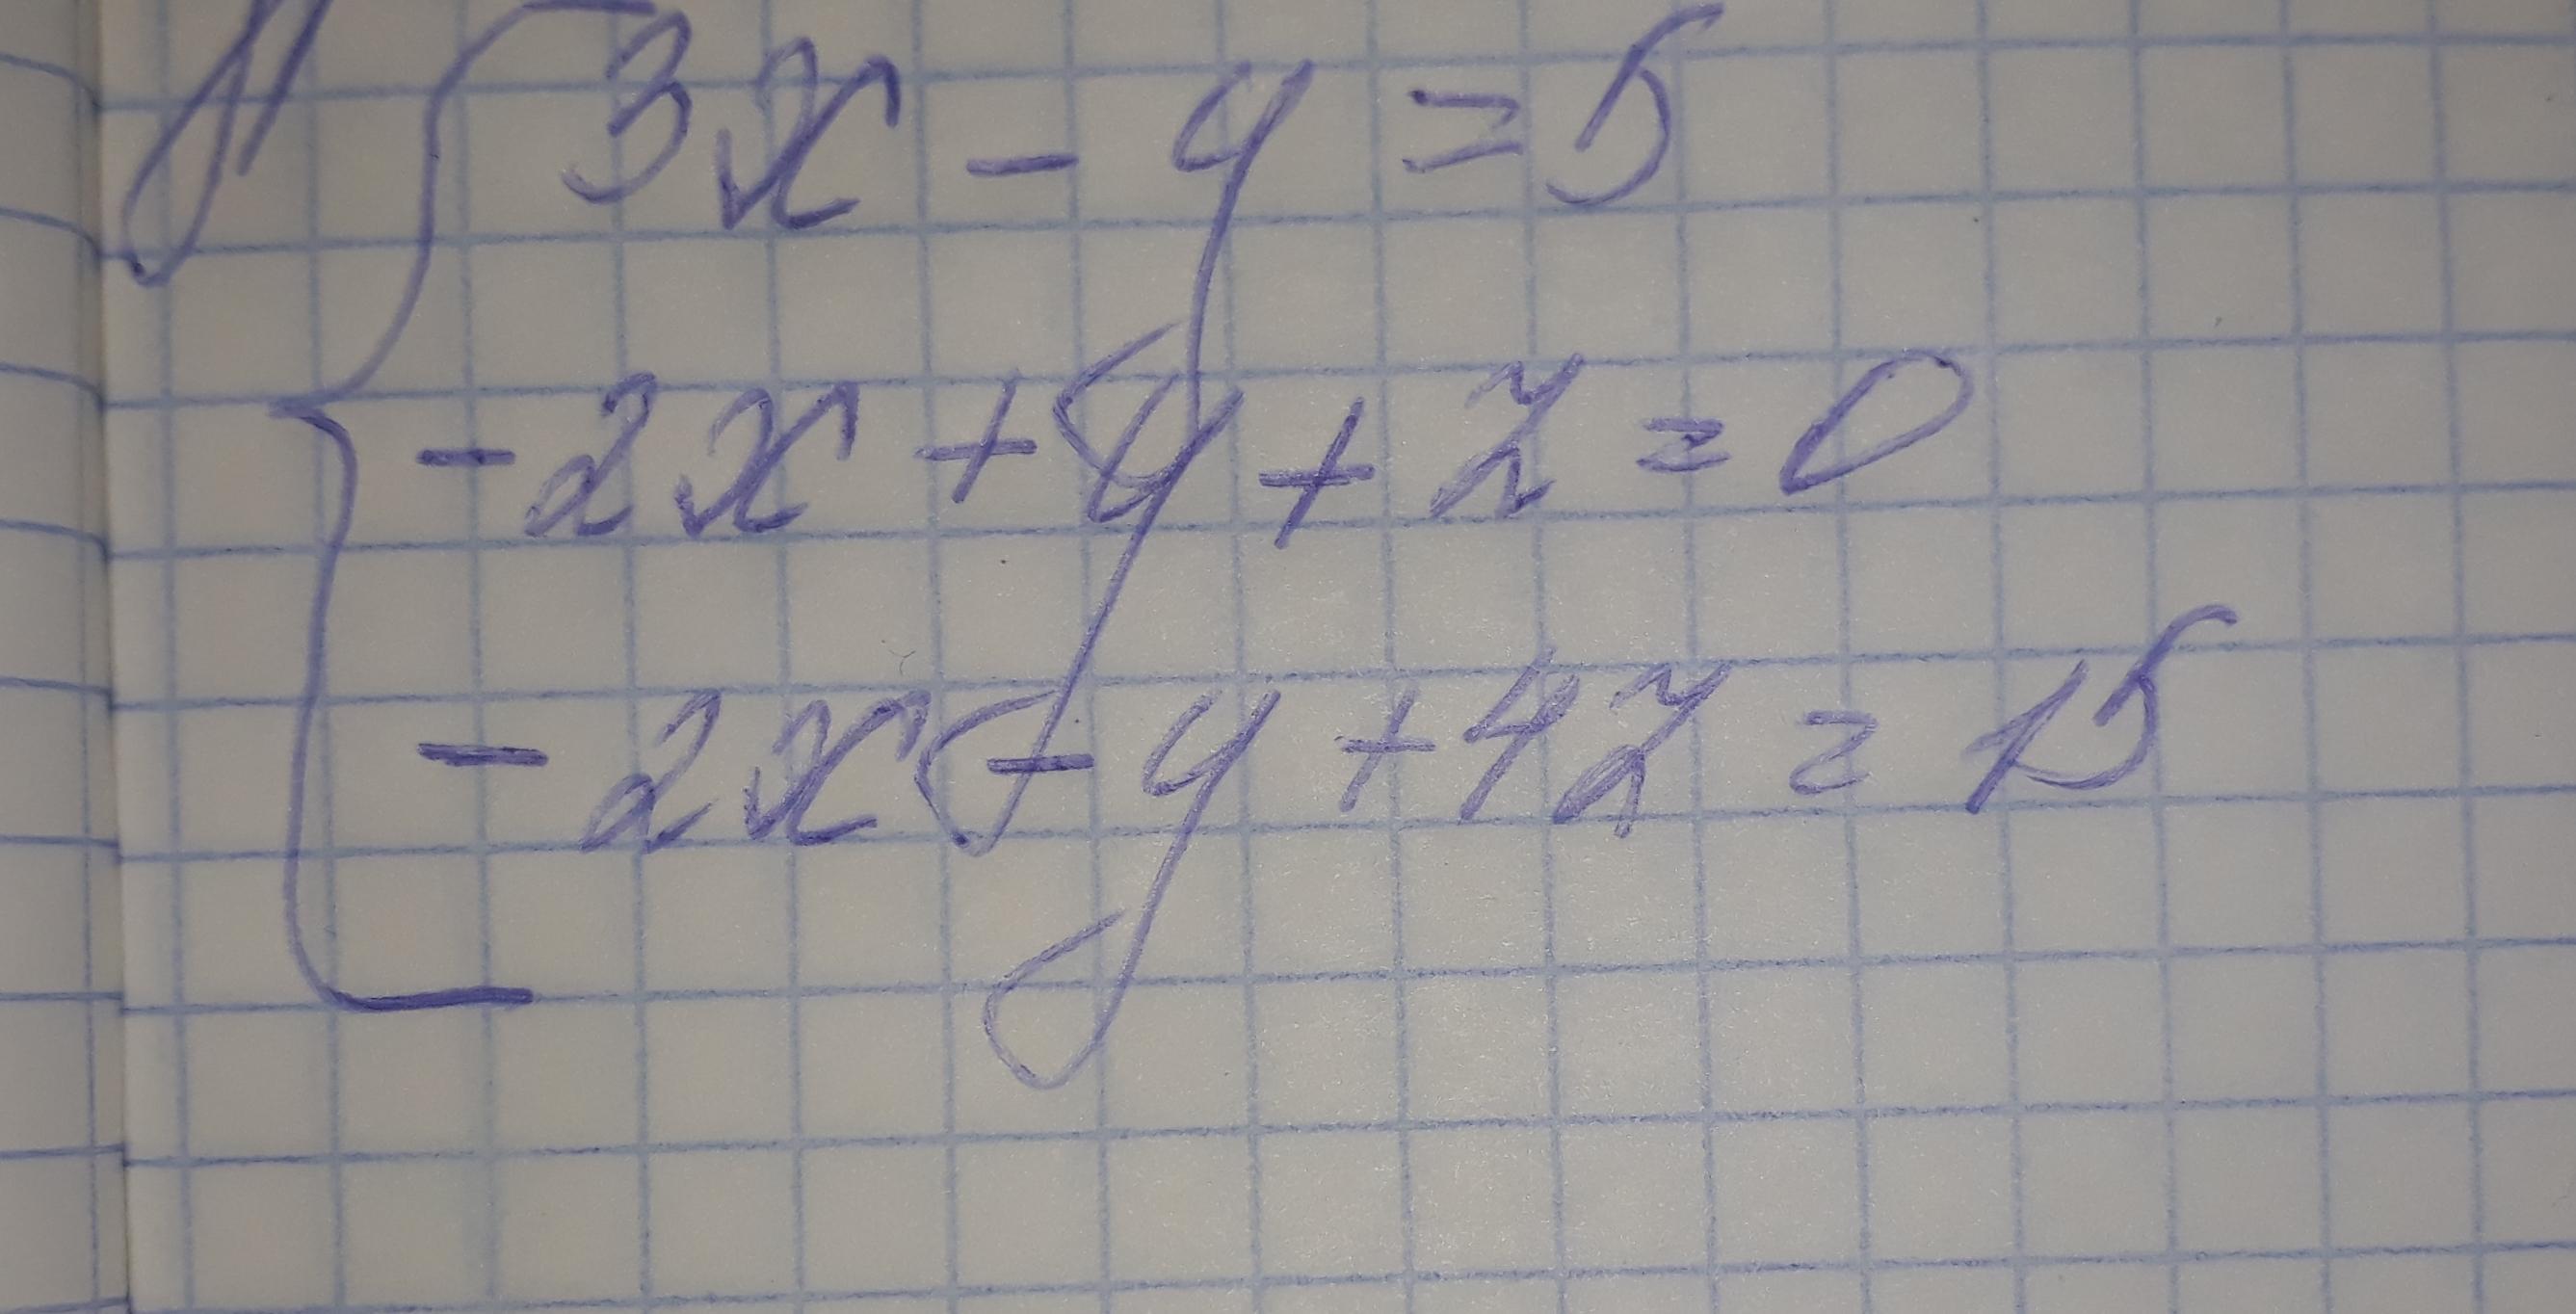 3x - y = 5
-2x + y + z = 0
-2x - y + 4z = 15